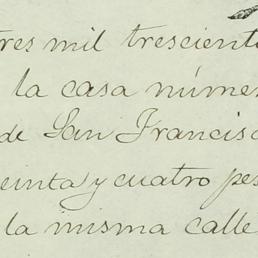 tres mil trescient
la casa núme
de San Francisc
einta y cuatro pes
la misma calle